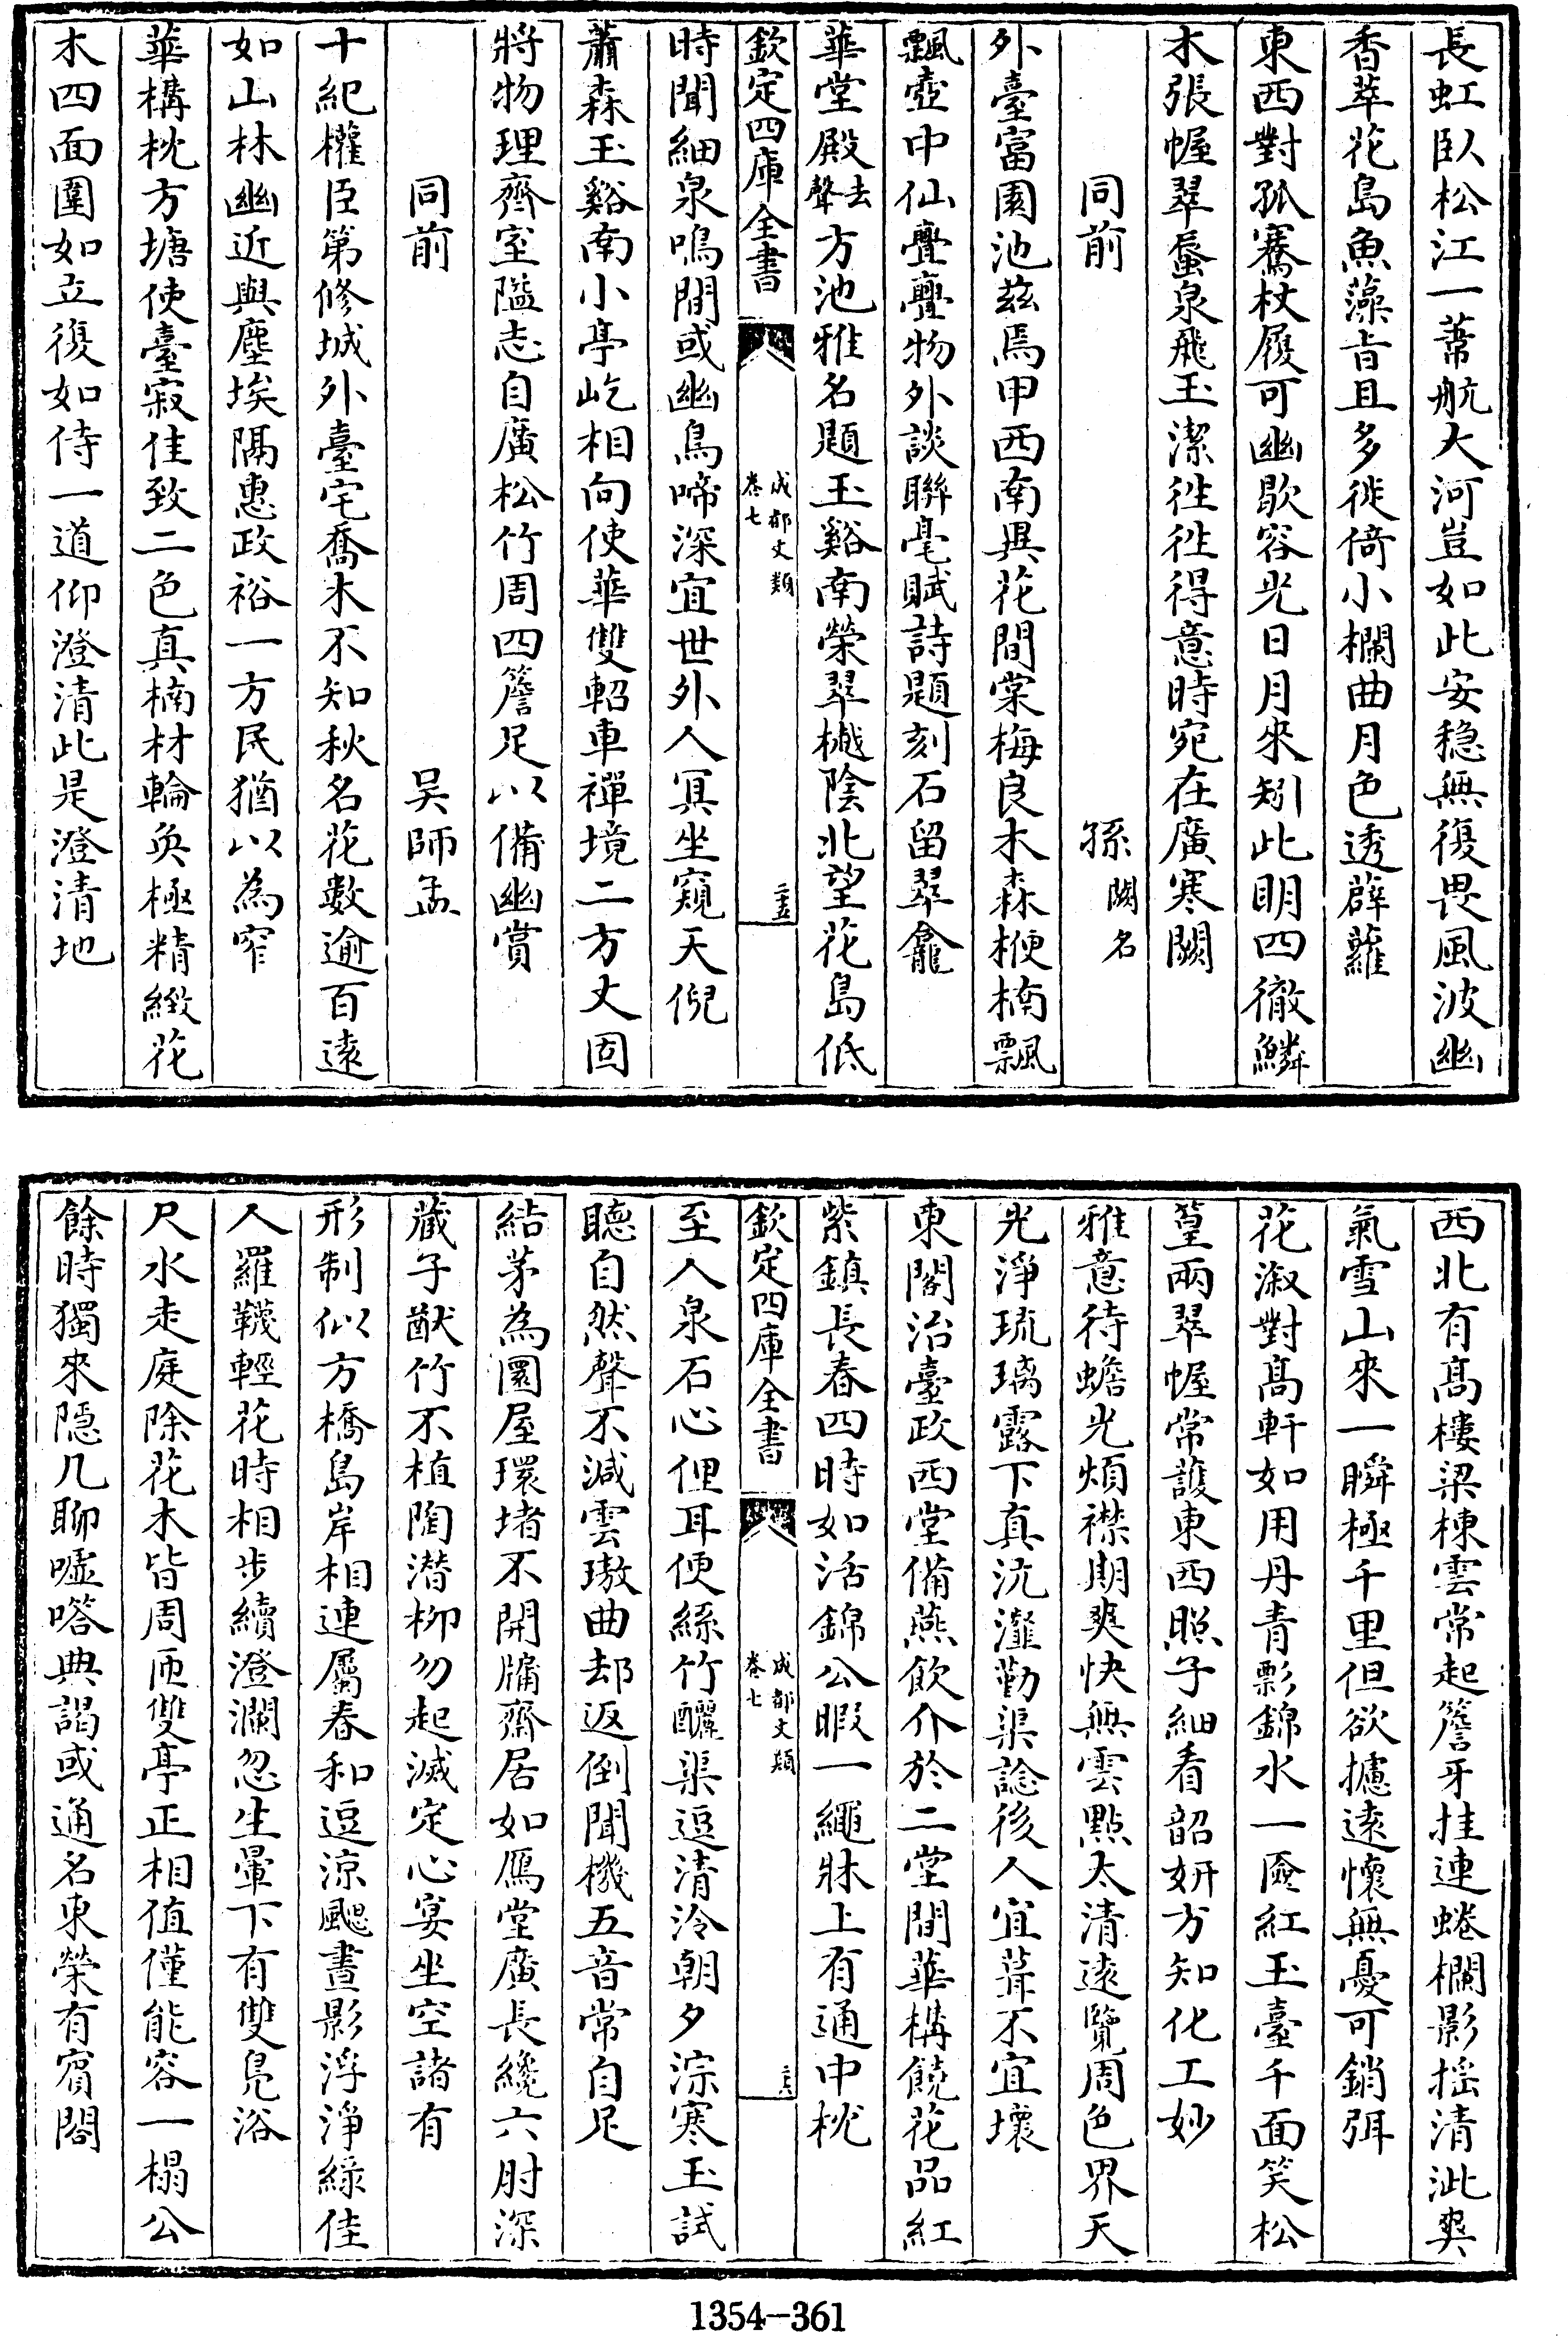 長虹臥松江一葦航大河豈如此安穏無復畏風波幽
香萃花島魚藻旨且多徙倚小欄曲月色透薜蘿
東西對孤騫杖履可幽歇容光日月來矧此明四徹鱗
木張幄翠蜃泉飛玉潔徃徃得意時宛在廣寒闕
同前 孫闕名
外臺富園池兹焉甲西南異花間棠梅良木森楩楠飄
飄壺中仙亹亹物外談聯毫賦詩題刻石留翠龕
華堂殿去聲方池雅名題玉谿南榮翠樾陰北望花島低
欽定四庫全書 成都文類 卷七 二五
時聞細泉鳴間或幽鳥啼深宜世外人冥坐窺天倪
蕭森玉谿南小亭屹相向使華雙軺車禪境二方丈固
將物理齊室隘志自廣松竹周四簷足以備幽賞
同前 吴師孟
十紀權臣第修城外臺宅喬木不知秋名花數逾百逺
如山林幽近與塵埃隔惠政裕一方民猶以為窄
華構枕方塘使臺寂佳致二色真楠材輪奐極精緻花
木四面圍如立復如侍一道仰澄清此是澄清地
西北有髙樓梁棟雲常起簷牙挂連蜷欄影摇清泚爽
氣雪山來一瞬極千里但欲攄逺懷無憂可銷弭
花溆對髙軒如用丹青彩錦水一匳紅玉臺千面笑松
篁兩翠幄常䕶東西照子細看韶妍方知化工妙
雅意待蟾光煩襟期爽快無雲㸃太清逺覽周色界天
光淨琉璃露下真沆瀣勤渠諗後人宜葺不宜壞
東閣治臺政西堂備燕飲介於二堂間華構饒花品紅
紫鎮長春四時如活錦公暇一繩牀上有通中枕
欽定四庫全書 成都文類 卷七 二六
至人泉石心俚耳便絲竹釃渠逗清泠朝夕淙寒玉試
聽自然聲不減雲璈曲却返倒聞機五音常自足
結茅為圜屋環堵不開牖齋居如鴈堂廣長纔六肘深
藏子猷竹不植陶潜柳勿起滅定心宴坐空諸有
形制似方橋島岸相連屬春和逗涼颸晝影浮淨緑佳
人羅韈輕花時相步續澄瀾忽生暈下有雙鳧浴
尺水走庭除花木皆周匝雙亭正相值僅能容一榻公
餘時獨來隠几聊嘘嗒典謁或通名東榮有賓閤
1354-361